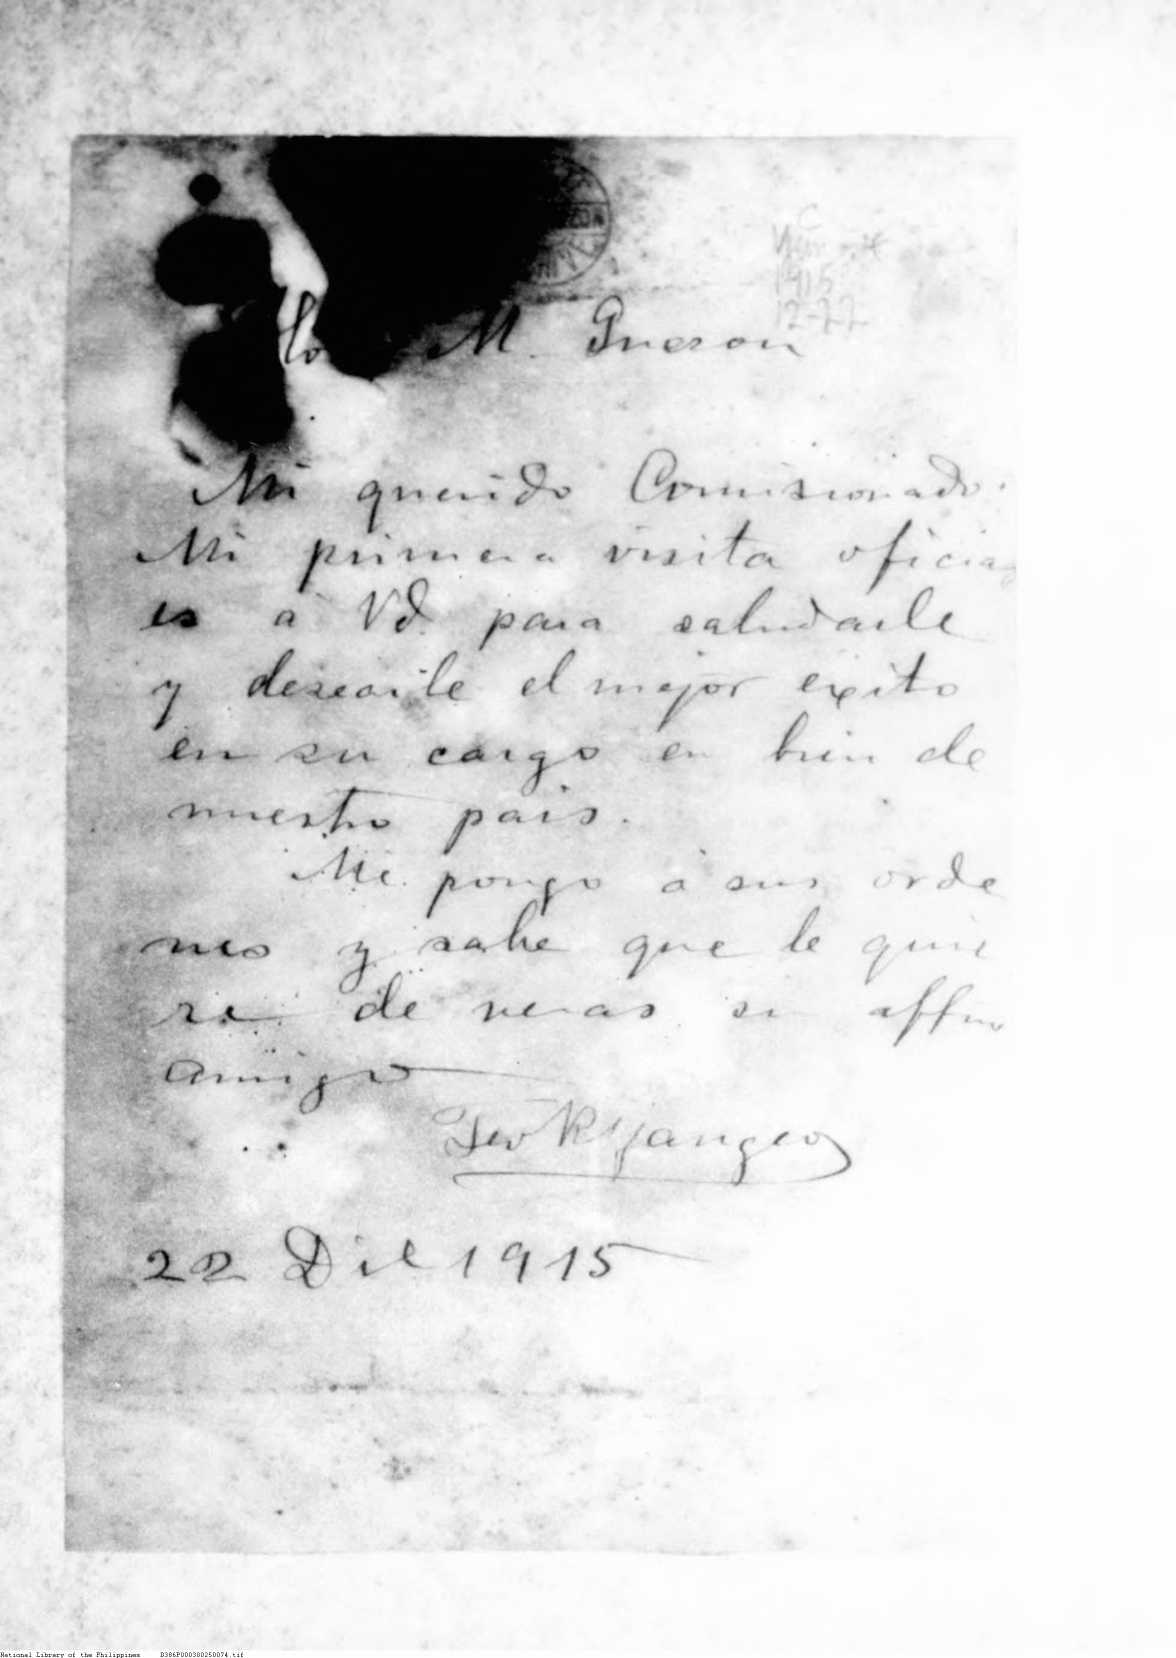 1915
12-22
M. Quezon
Mi querido Comisionado:
Mi primera visita oficial
es á Vd. para saludarle
y desearle el mejor exito
en su cargo en bien de
nuestro pais.
Me pongo á sus orde
nes y sabe que le quie
re de veras su affmo
amigo
Teo R Yangco
22 Dic 1915
National Library of the Philippines D386P000300250074.tif